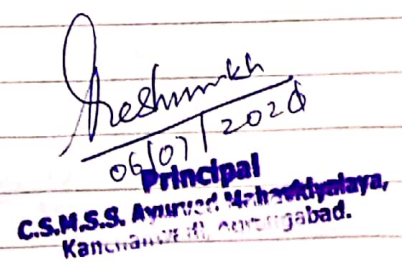 Deshmukh
06/07/2020
Principal
C.S.M.S.S. Ayurved Mahavidyalaya,
Kanchanwadi, Aurangabad.